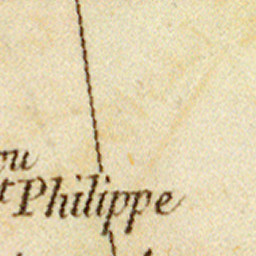 ou
t Philippe